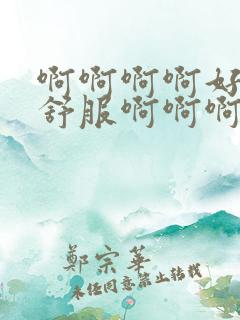 啊啊啊啊好
舒服啊啊啊
鄭宗華
未经同意禁止转载